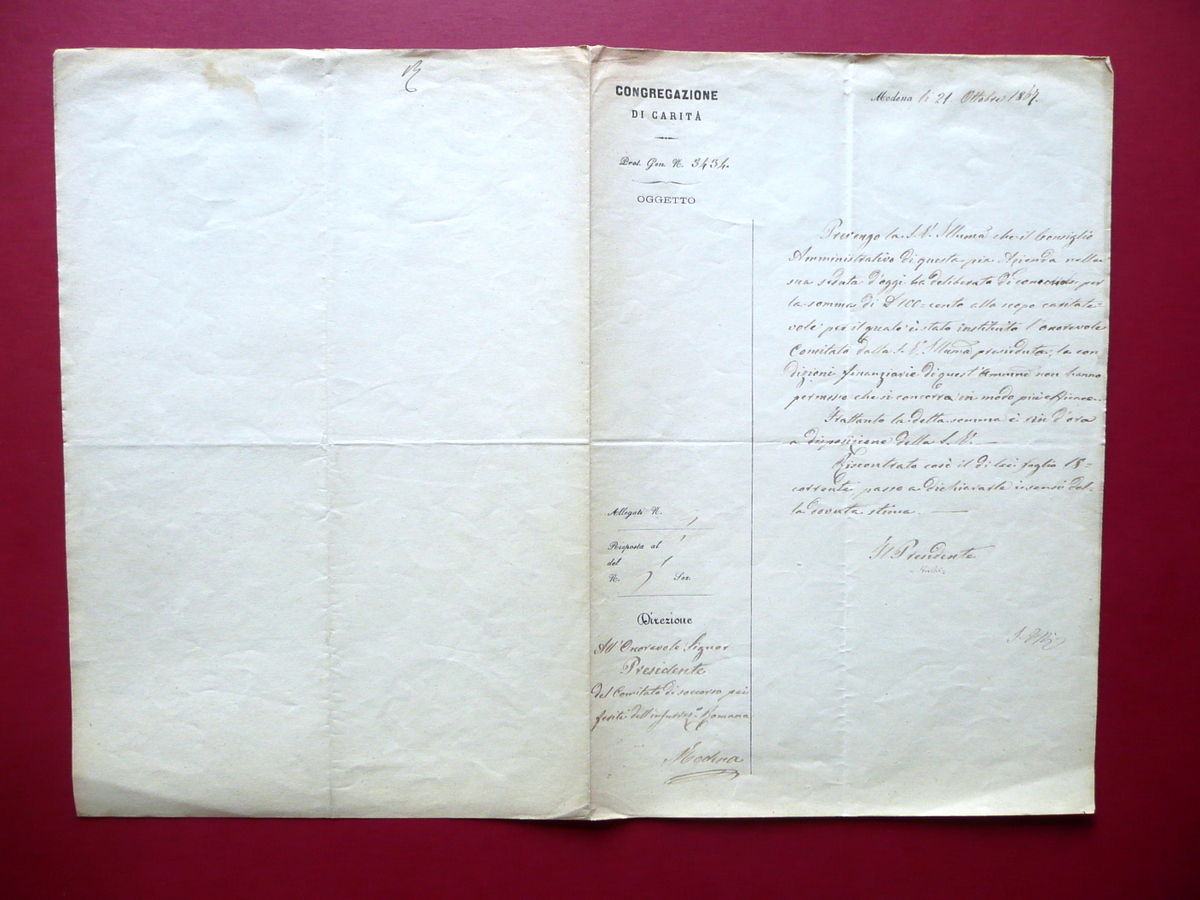 CONGREGAZIONE
DI CARITÀ
Prot. Gen. N. 3434.
OGGETTO
Modena li 21 Ottobre 1867.
Prevengo la S. V. Illuma che il Consiglio
Amministrativo di questa pia Azienda nella
sua seduta d'oggi ha deliberato di concorrere per
la somma di cento allo scopo caritate-
vole per il quale è stato instituito l'onorevole
Comitato dalla S. V. Illuma presieduto; le con-
dizioni finanziarie di quest' non hanno
permesso che si concorra in modo più efficace.
Frattanto la detta somma è sin d'ora
a disposizione della S. V. —
Riscontrato così il di Lei foglio 18=
corrente passo a dichiararle i sensi del-
la dovuta stima. —
Il Presidente
Allegati N.
Risposta al
del
N. Sez.
Direzione
All'Onorevole Signor
Presidente
del Comitato di soccorso pei
feriti dell'insurrez.e Romana
Modena